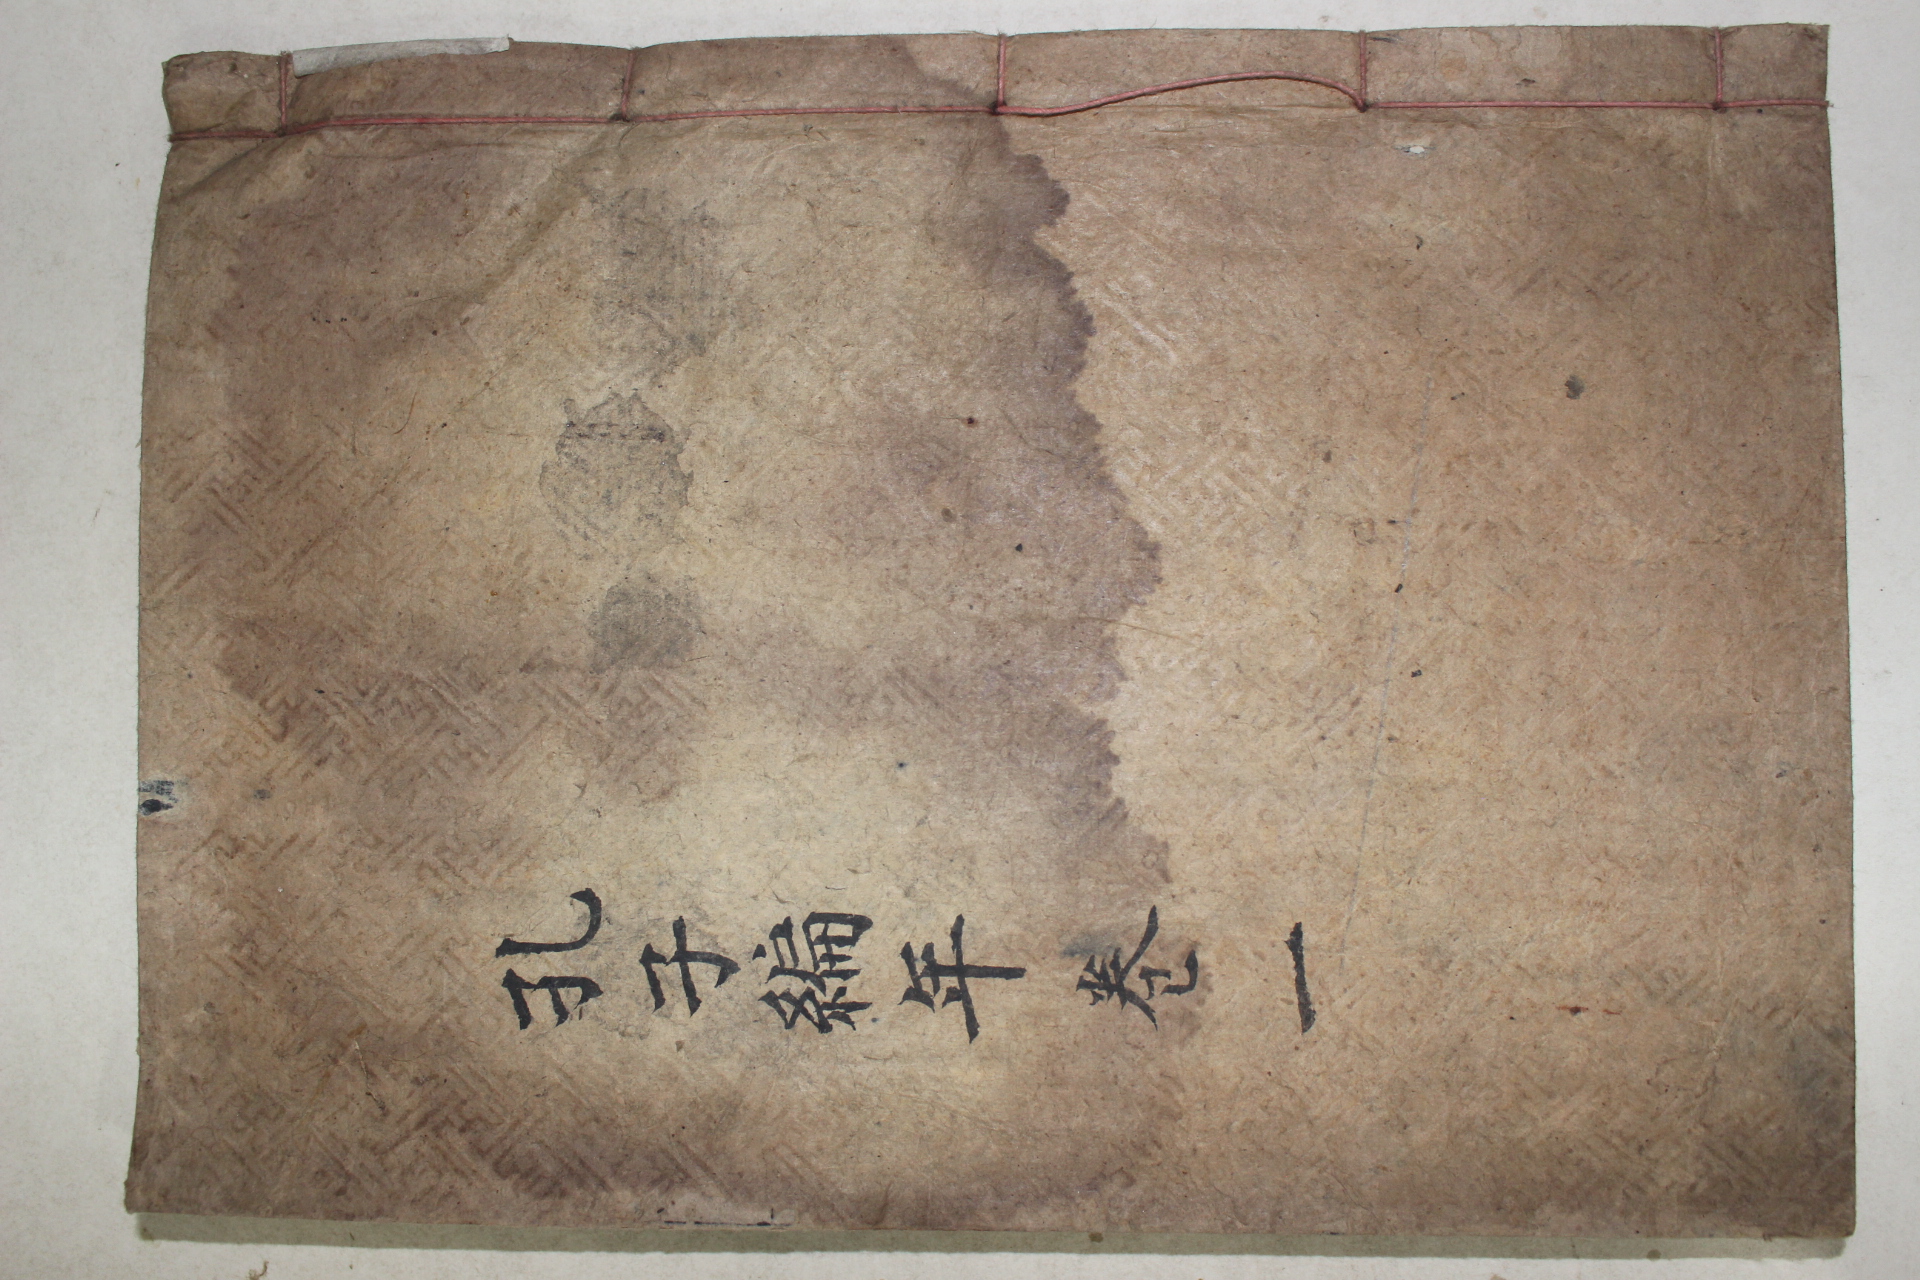 孔子編年卷一